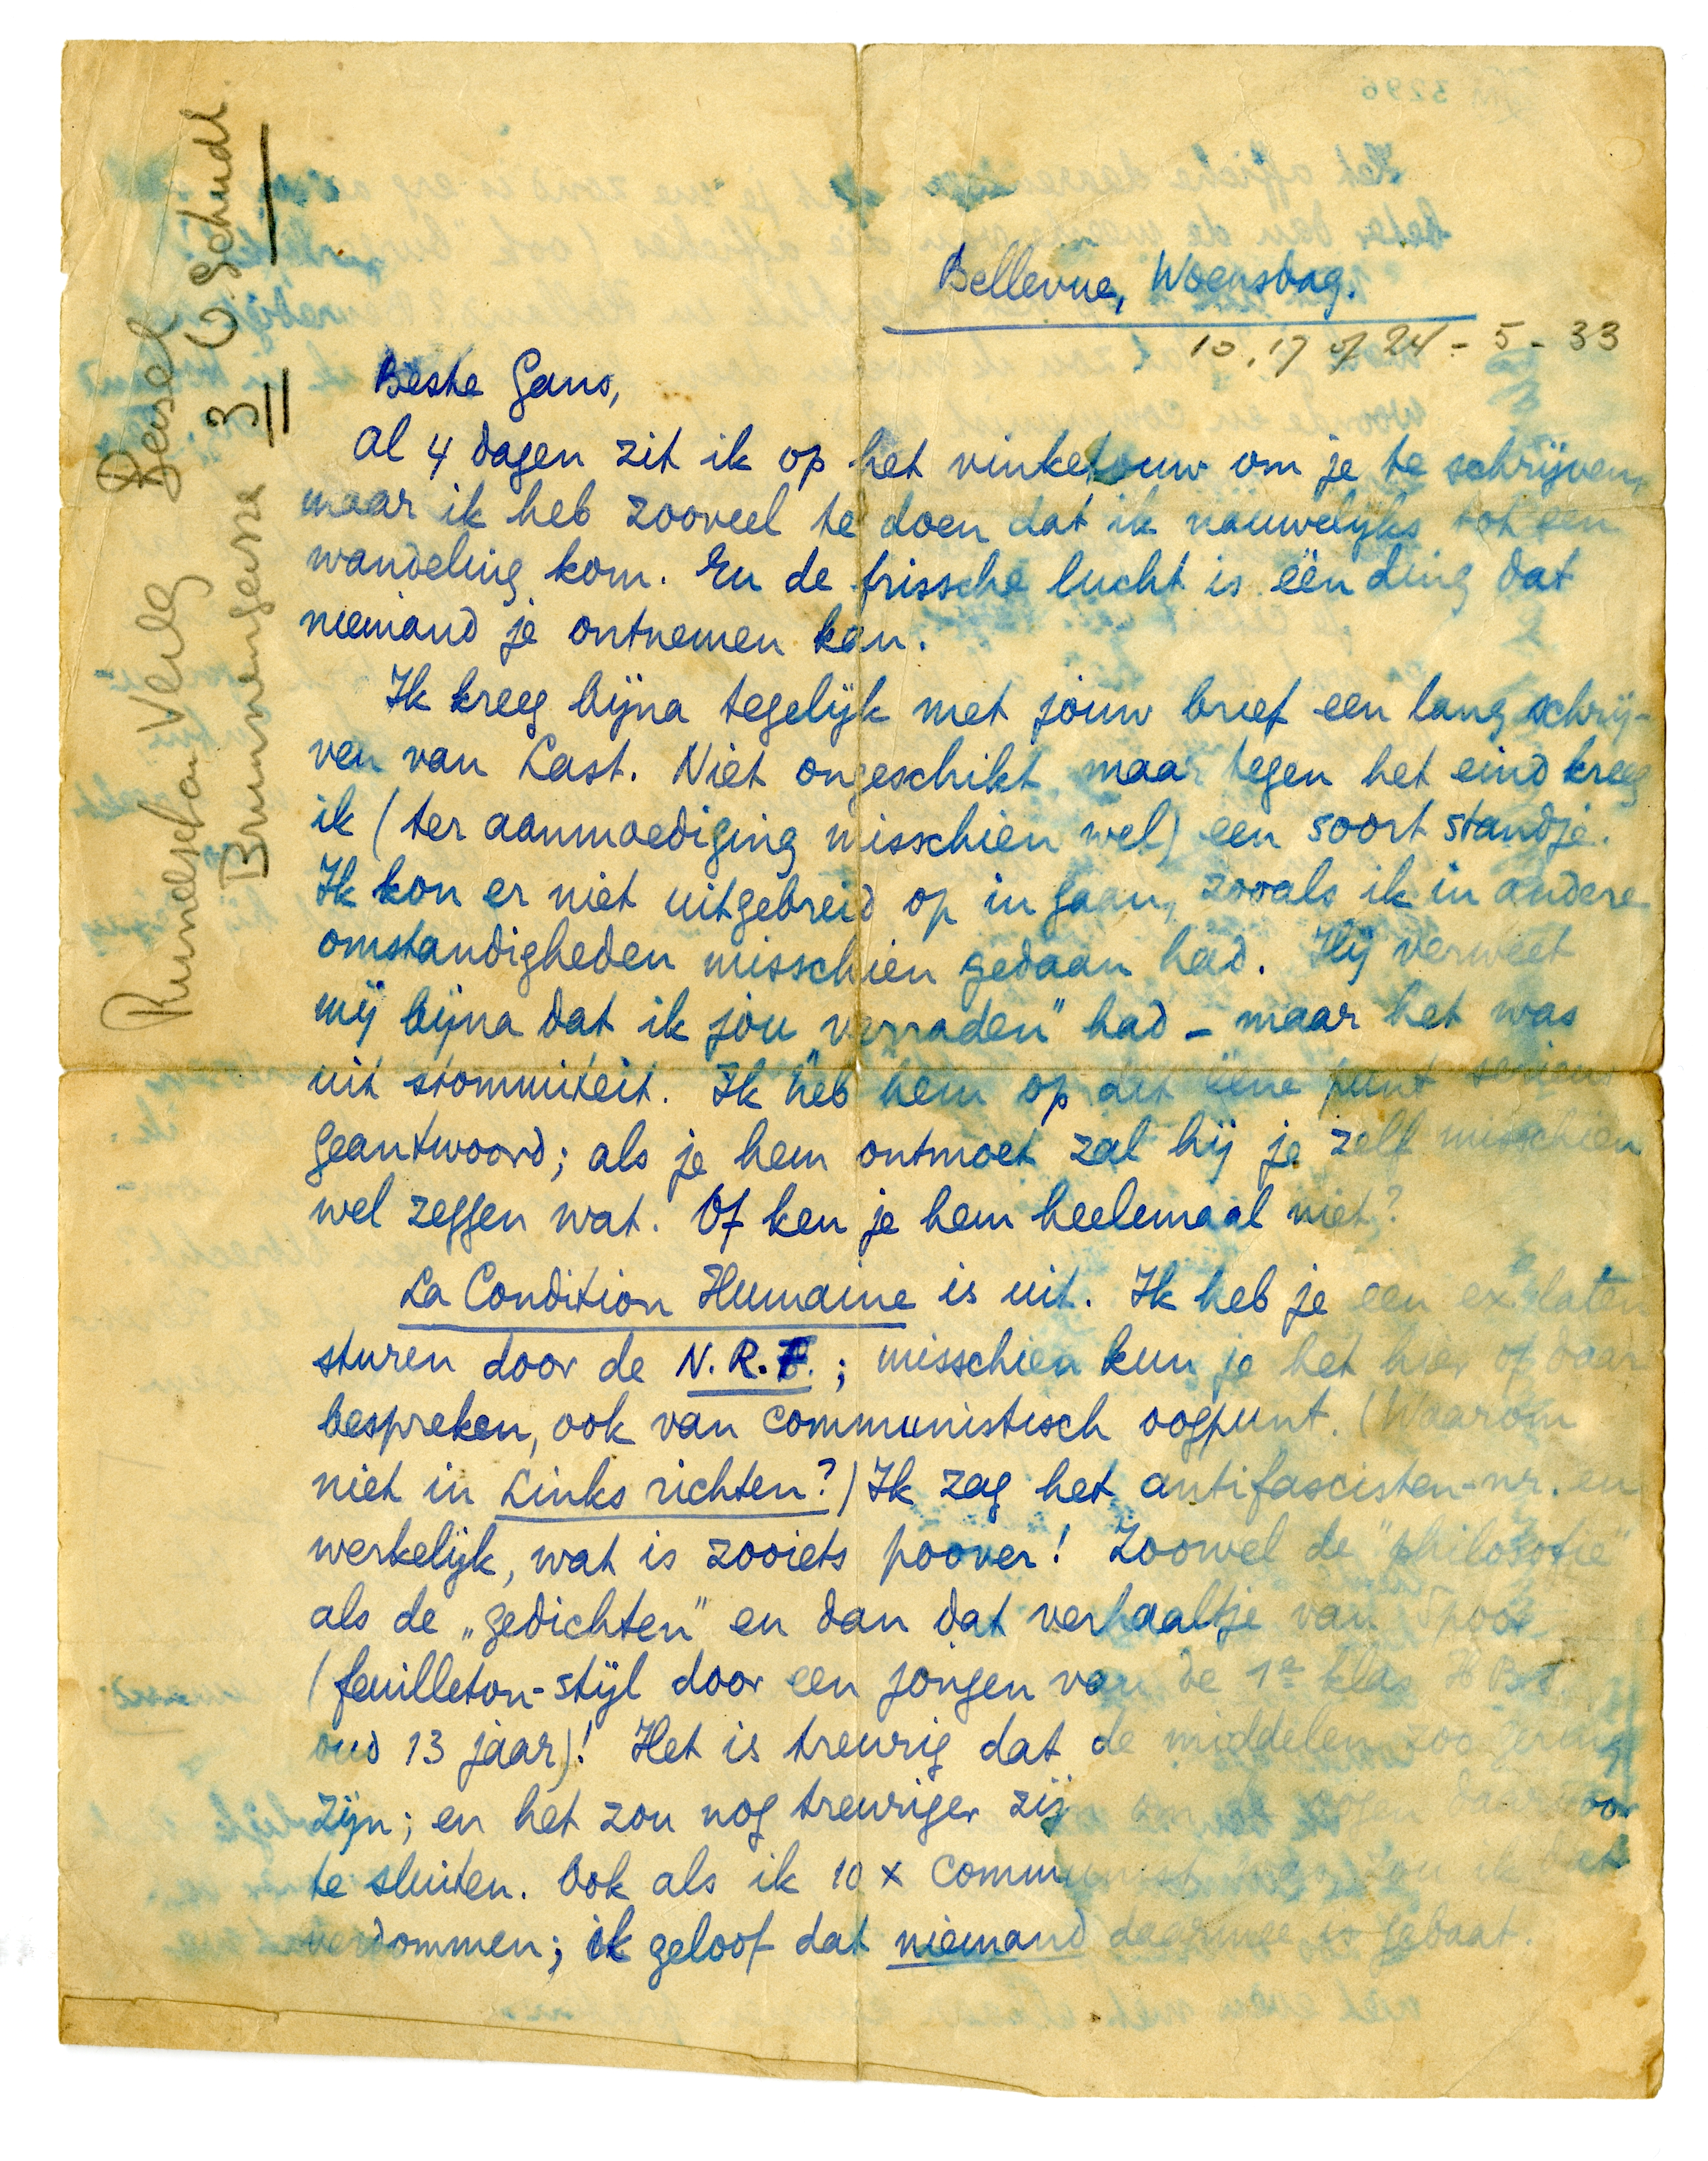 Bellevue, Woensdag.
10, 17 of 24 - 5 - 33
Beste Gans,
Al 4 dagen zit ik op het vinketouw om je te schrijven,
maar ik heb zooveel te doen dat ik nauwelijks tot een
wandeling kom. En de frissche lucht is één ding dat
niemand je ontnemen kan.
Ik kreeg bijna tegelijk met jouw brief een lang schrij-
ven van Last. Niet ongeschikt maar tegen het eind kreeg
ik (ter aanmoediging misschien wel) een soort standje.
Ik kon er niet uitgebreid op in gaan, zooals ik in andere
omstandigheden misschien gedaan had. Hij verweet
mij bijna dat ik jou „verraden" had – maar het was
uit stommiteit. Ik heb hem op dit ééne punt serieus
geantwoord; als je hem ontmoet zal hij je zelf misschien
wel zeggen wat. Of ken je hem heelemaal niet?
La Condition Humaine is uit. Ik heb je een ex. laten
sturen door de N.R.F.; misschien kun je het hier of daar
bespreken, ook van communistisch oogpunt. (Waarom
niet in Links richten?) Ik zag het antifascisten-nr. en
werkelijk, wat is zooiets poover! Zoowel de "philosofie"
als de „gedichten" en dan dat verhaaltje van
(feuilleton-stijl door een jongen van de 1e klas HBS
oud 13 jaar)! Het is treurig dat de middelen zoo gering
zijn; en het zou nog treuriger zij om oogen daarvoor
te sluiten. Ook als ik 10 x communist was, zou ik het
verdommen; ik geloof dat niemand daarmee is gebaat.
Rundschau Verlg Basel
Brunnengasse 3 II